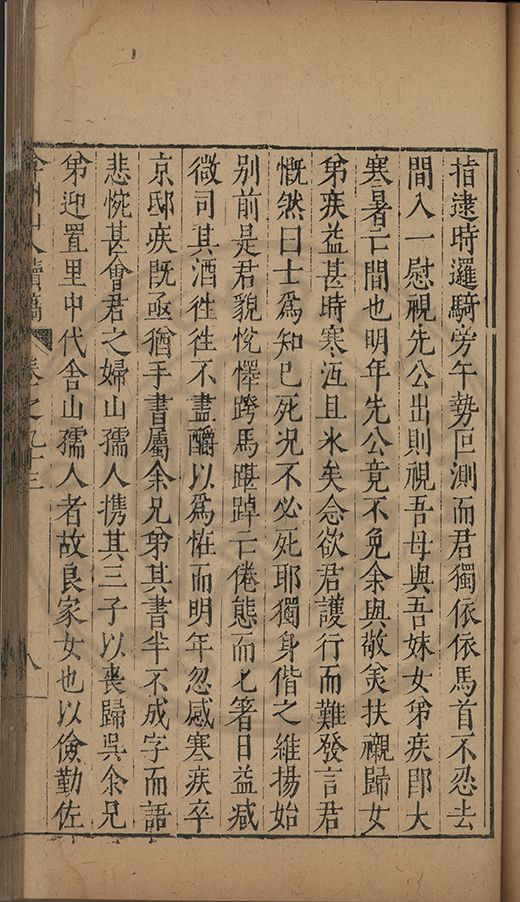 指逮時邏騎旁午勢叵測而君獨依依馬首不忍去
間入一慰視先公出則視吾母與吾妹女弟疾即大
寒暑亡間也明年先公竟不免余與敬美扶櫬歸女
弟疾益甚時寒沍且氷矣念欲君護行而難發言君
慨然曰士爲知已死况不必死耶獨身偕之維揚始
别前是君貌悅懌跨馬踸踔亡倦態而匕箸日益减
微司其酒徃徃不盡釂以爲恠而明年忽感寒疾卒
京邸疾旣亟猶手書屬余兄弟其書半不成字而語
悲惋甚會君之婦山孺人携其三子以喪歸吳余兄
弟迎置里中代舍山孺人者故良家女也以儉勤佐
弇州山人續稿 卷之九十三 八